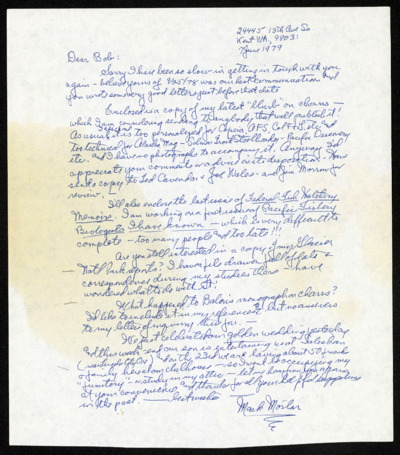 24445 13th Ave So.
Kent WA, 98031
June 1979
Dear Bob:
Sorry I have been so slow in getting in touch with you
again - believe yours of 1/25/78 was our last communication and
you wrote some very good letters just before that date.
Enclosed is a copy of my latest "blurb" on charrs -
which I am considering sending to anybody that will publish it!
As usual it is too personalized for Copeia, AFS, Cal F+G, etc. and
too technical for
etc. and I have no photographs to accompany it. Anyway I'd
appreciate your comments or advice on its disposition. Have
sent a copy to Ted Cavender, Joe Wales and Jim Morrow for
review.
I'll also enclose the last issue of Federal Fish Hatchery
Memoirs. I am working on a first issue of Pacific Fishery
Biologists I have known - which is very difficult to
complete - too many people and too late!!!
Are you still interested in a copy of my Glacier
Natl Park reports? I have file drawer full of data &
correspondence during my studies there & have
wondered what to do with it!
What happened to Balon's monograph on charrs?
I'd like to include it in my references but no answers
to my letter of inquiry thus far.
We just celebrated our golden wedding yesterday
and this week-end our son is entertaining us at Salishan
and on the 23rd we are having about 50 friends
& family here at our clubhouse - so I want to
"furnitory" - a study in my attic - let me hear from you again
at your convenience and thanks for all your helpful suggestions
in the past. - best wishes -
Mark Morton